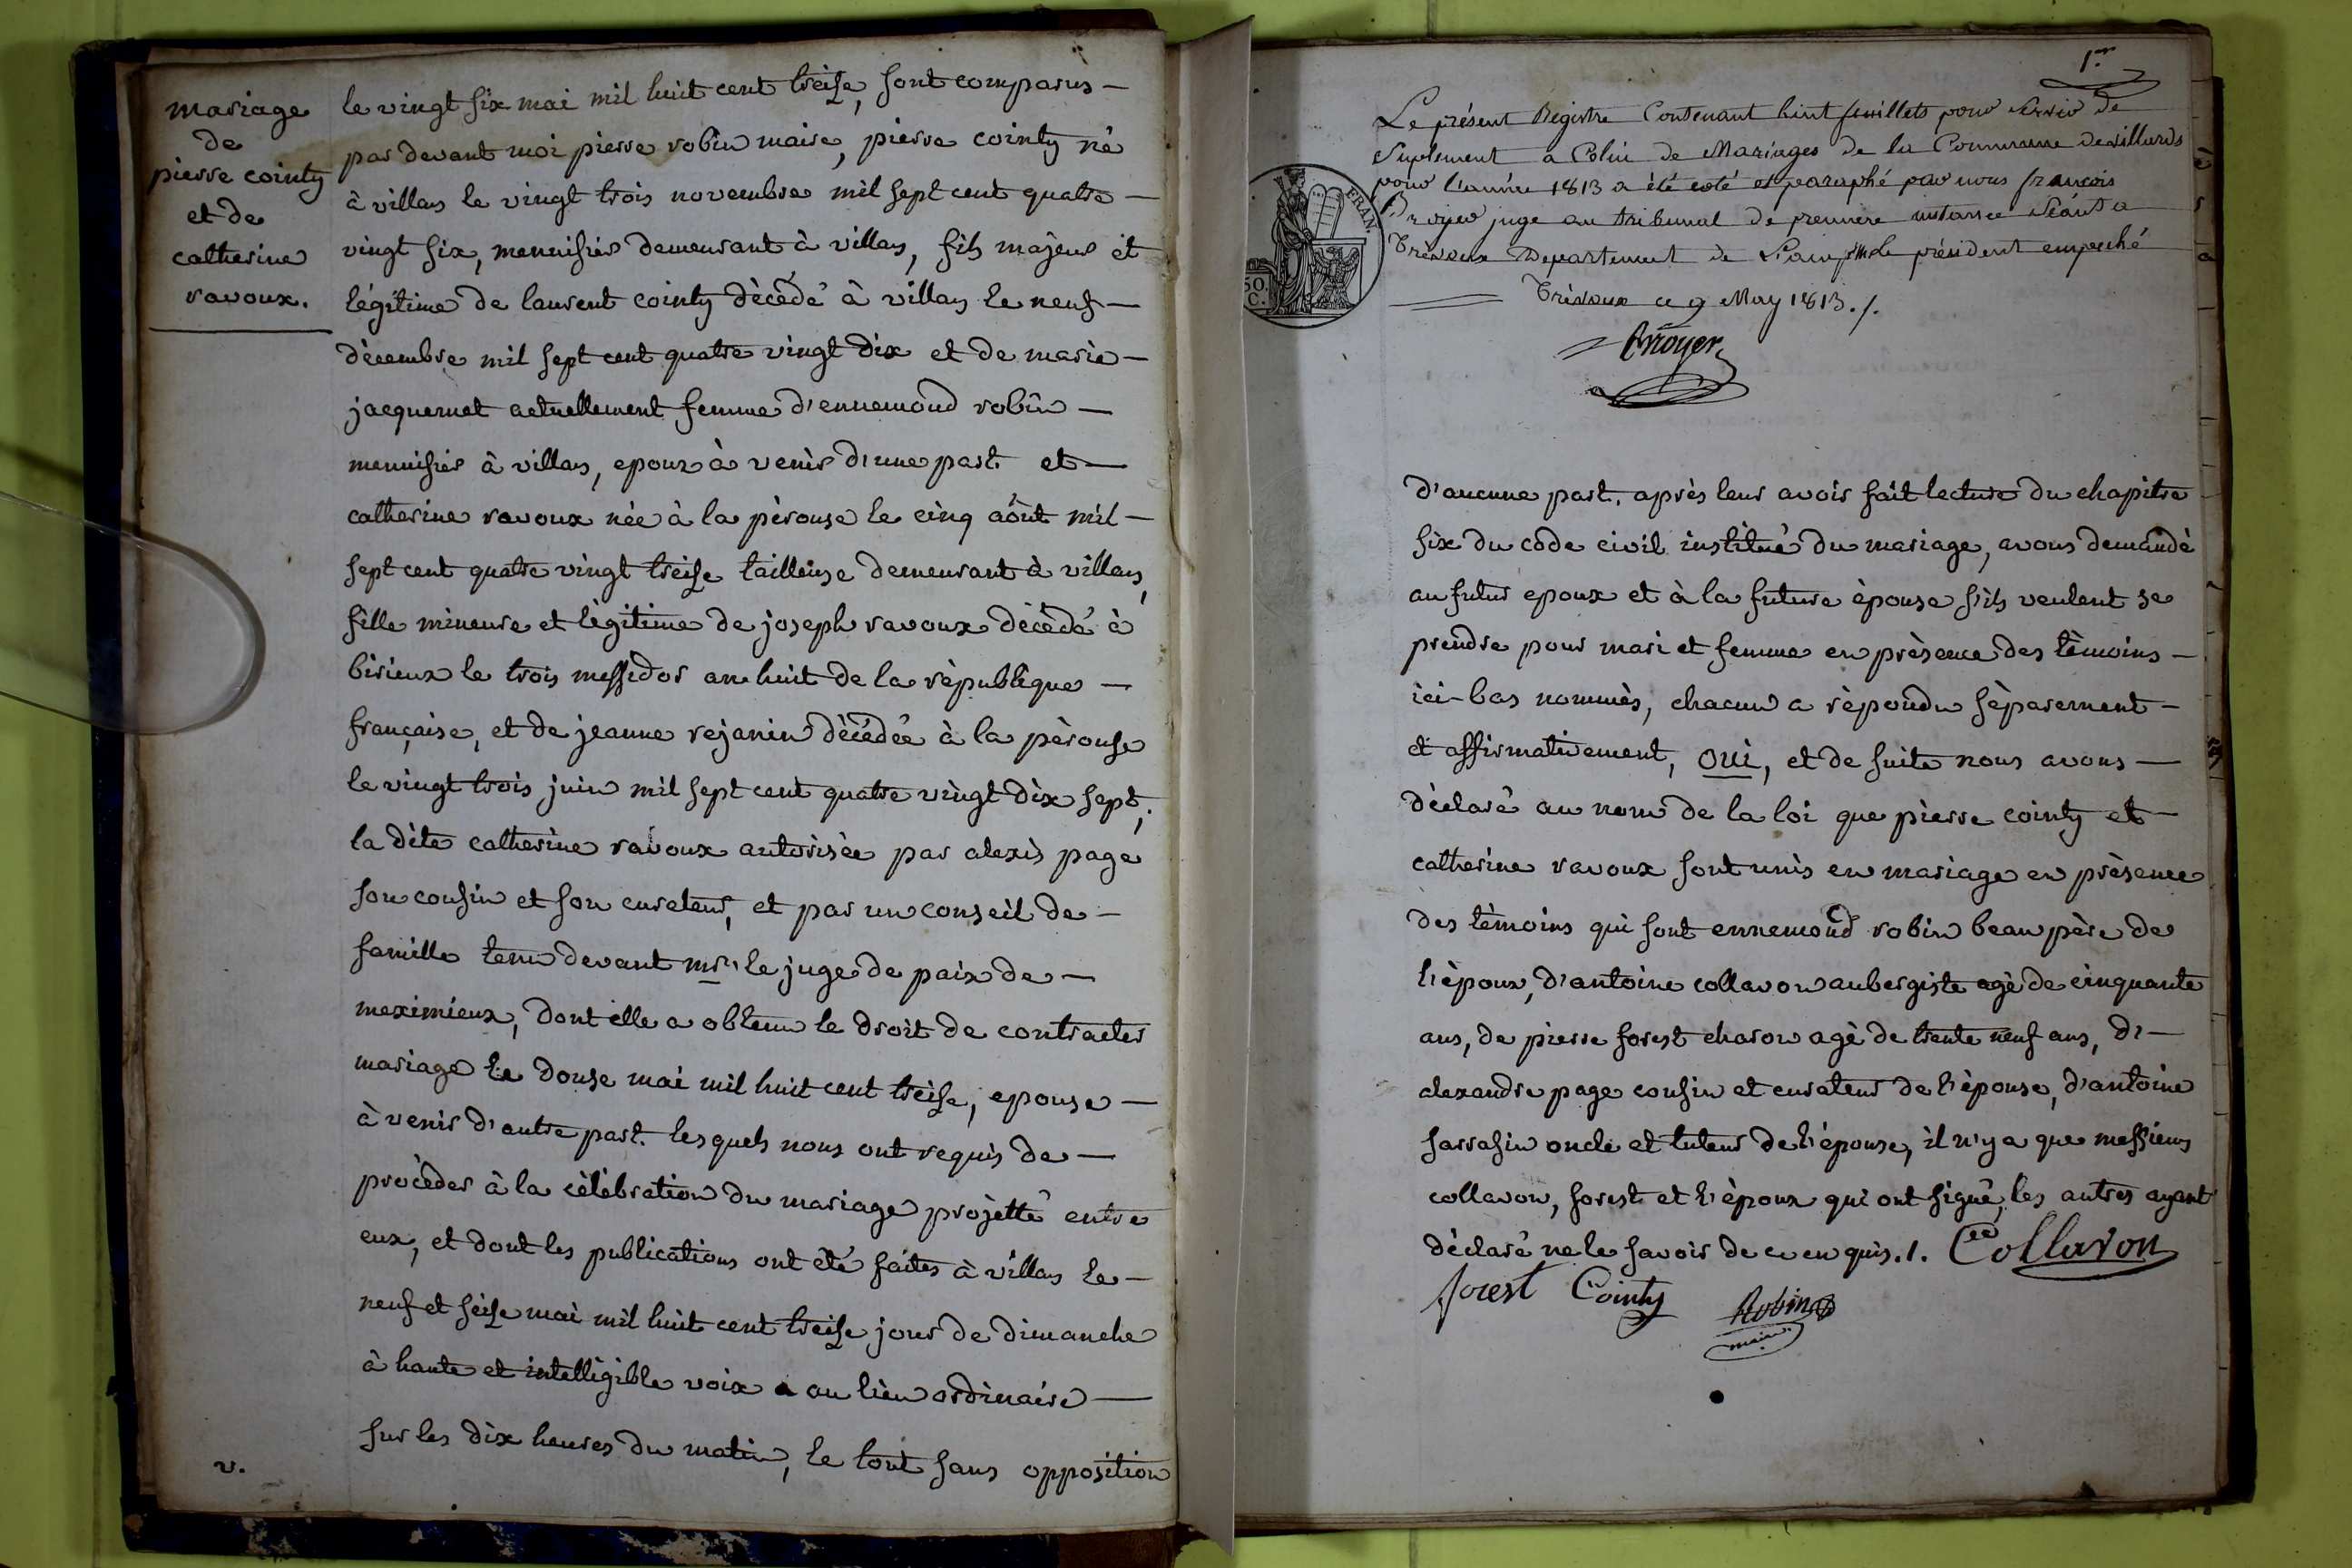 mariage
de
pierre cointy
et de
catherine
ravoux.
le vingt six mai mil huit cent treise, sont comparus —
par devant moi pierre robin maire, pierre cointy né
à villars le vingt trois novembre mil sept cent quatre —
vingt six, menuisier demeurant à villars, fils majeur et
légitime de laurent cointy décédé à villars le neuf —
décembre mil sept cent quatre vingt dix et de marie —
jacquemet actuellement femme d'ennemond robin —
menuisier à villars, epoux à venir d'une part. et —
catherine ravoux née à la pérouse le cinq août mil —
sept cent quatre vingt treise tailleuse demeurant à villars,
fille mineure et légitime de joseph ravoux décédé à
birieux le trois messidor an huit de la république —
française, et de jeanne rejanin décédée à la pérouse
le vingt trois juin mil sept cent quatre vingt dix sept,
la dite catherine ravoux autorisée par alexis page
son cousin et son curateur, et par un conseil de —
famille tenu devant mr. le juge de paix de —
meximieux, dont elle a obtenu le droit de contracter
mariage le douse mai mil huit cent treise, epouse —
à venir d'autre part. lesquels nous ont requis de —
procéder à la célébration du mariage projetté entre
eux, et dont les publications ont été faites à villars le —
neuf et seise mai mil huit cent treise jour de dimanche
à haute et intelligible voix au lieu ordinaire —
sur les dix heures du matin, le tout sans opposition
v.
1er
Le présent Registre Contenant huit feuillets pour servir de
Suplement a Celui de Mariages de la Commune de villards
pour l'année 1813 a été coté et paraphé par nous françois
juge au tribunal de premiere instance Séant a
Trévoux Departement de L'ain, le président empeché
Trévoux ce 9 May 1813./.
FRAN.
50.
C.
d'aucune part. après leur avoir fait lecture du chapitre
six du code civil institué du mariage, avons demandé
au futur epoux et à la future épouse s'ils veulent se
prendre pour mari et femme en présence des témoins —
ici-bas nommés, chacun a répondu séparement —
et affirmativement, oui, et de suite nous avons —
déclaré au nom de la loi que pierre cointy et —
catherine ravoux sont unis en mariage en présence
des témoins qui sont ennemond robin beau père de
l'époux, d'antoine collavon aubergiste agé de cinquante
ans, de pierre forest charon agé de trente neuf ans, d' —
alexandre page cousin et curateur de l'épouse, d'antoine
sarrasin oncle et tuteur de l'épouse, il n'y a que messieurs
collavon, forest et l'époux qui ont signé, les autres ayant
déclaré ne le savoir de ce enquis./. Collavon
forest Cointy Robin
maire